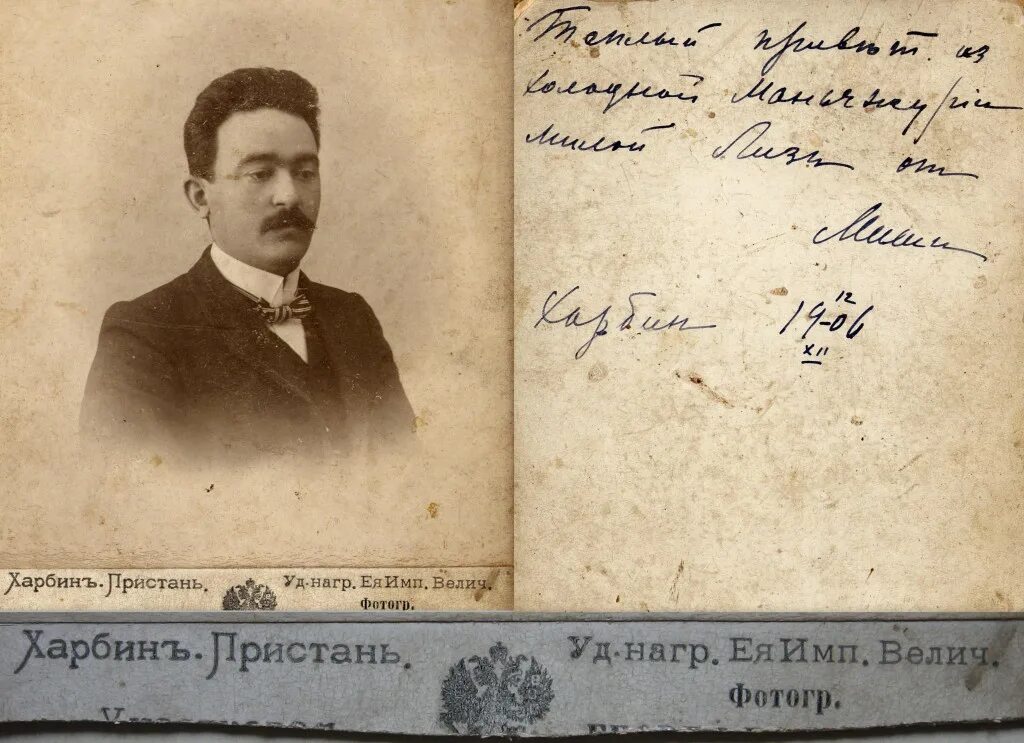 Теплый привѣт из
холодной Маньчжуріи
милой Лизы от
Миши
Харбин 12
19-06
XII
Харбинъ. Пристань.
Уд. нагр. Ея Имп. Велич.
Фотогр.
Харбинъ. Пристань.
Уд. нагр. Ея Имп. Велич.
Фотогр.